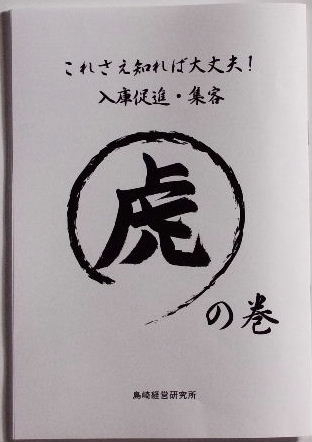 これさえ知れば大丈夫！
入庫促進・集客
虎
の巻
島崎経営研究所